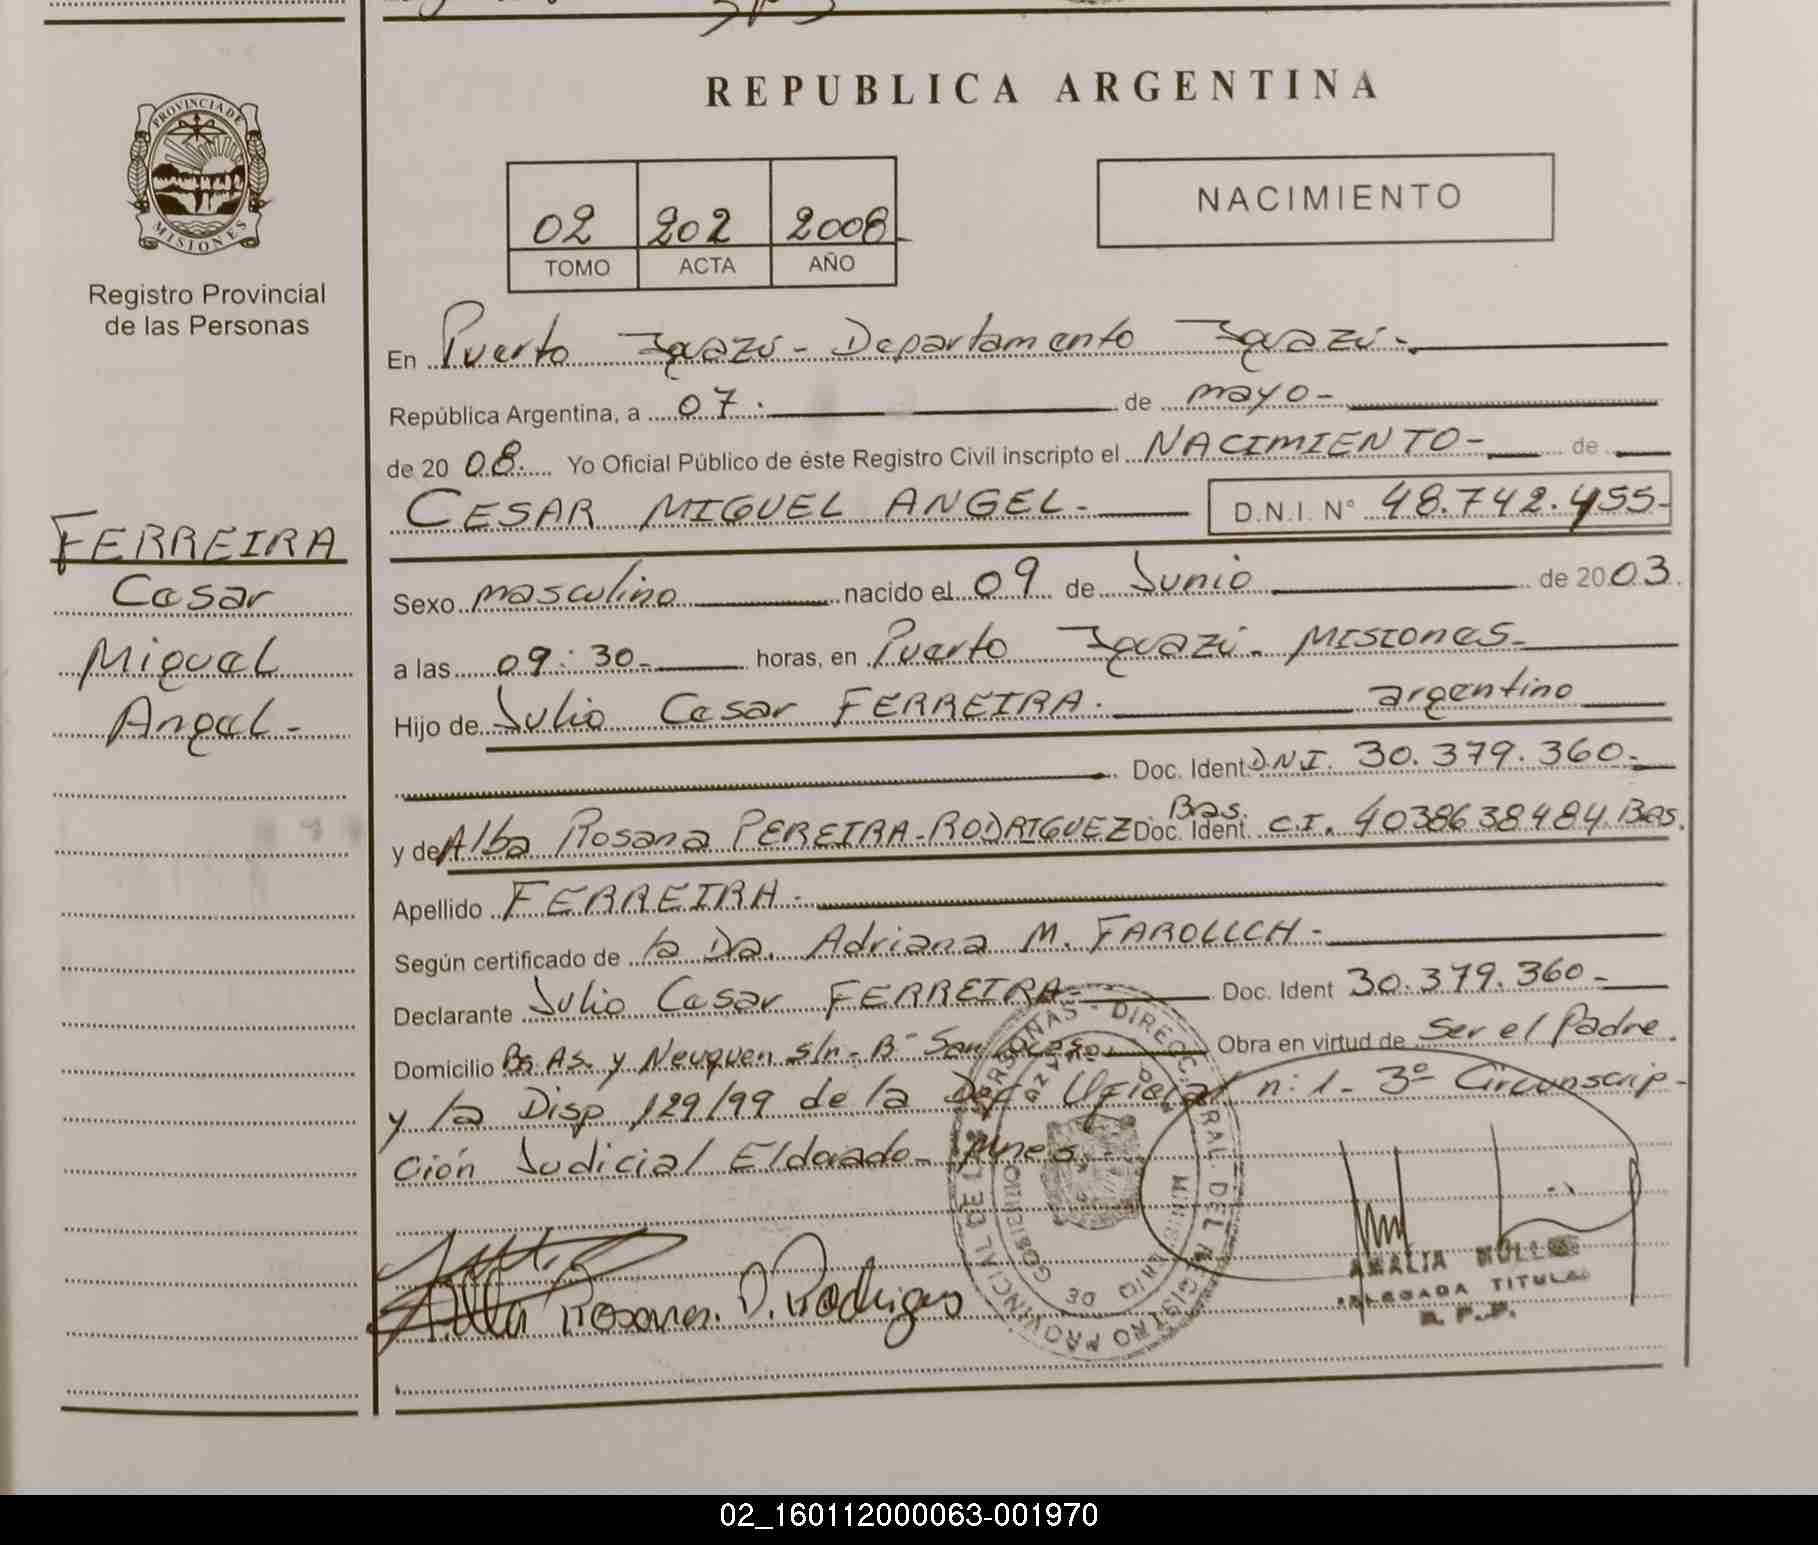 REPUBLICA ARGENTINA
PROVINCIA DE
MISIONES
Registro Provincial
de las Personas
02 202 2008
TOMO ACTA AÑO
NACIMIENTO
En Puerto Iguazú - Departamento Iguazú -
República Argentina, a 07. de mayo -
de 20 08. Yo Oficial Público de éste Registro Civil inscripto el NACIMIENTO - de
CESAR MIGUEL ANGEL - D.N.I. N° 48.742.455-
FERREIRA
Cesar
Miguel
Angel -
Sexo masculino nacido el 09 de Junio de 20 03.
a las 09:30- horas, en Puerto Iguazú. Misiones-
Hijo de Julio Cesar FERREIRA. argentino
Doc. Ident DNI. 30.379.360-
y de Alba Rosana PEREIRA-RODRIGUEZ Bas. Doc. Ident. C.I. 4038638484 Bas.
Apellido FERREIRA -
Según certificado de la Da. Adriana M.
Declarante Julio Cesar FERREIRA - Doc. Ident 30.379.360-
Domicilio Bs As. y Neuquen s/n - B° San Obra en virtud de Ser el Padre.
y la Disp 129/99 de la Oficial n: 1 - 3° Circunscrip-
ción Judicial Eldorado - Mnes.
Alba Rosana. P. Rodrigues
AMALIA
DELEGADA TITULAR
R. P. P.
02_160112000063-001970